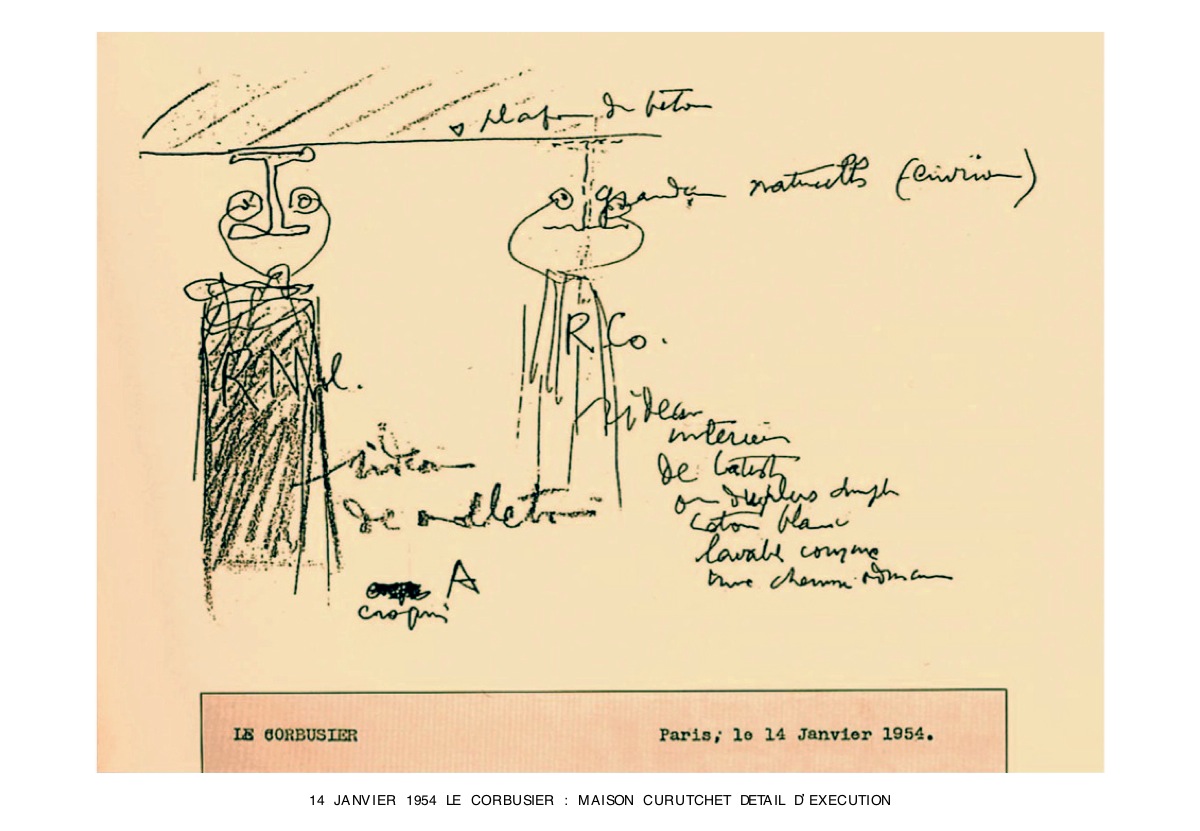 plafond de béton
grandeur naturelle (environ)
R Co.
R Nol.
rideau
intérieur
rideau
de
de molleton
ou
coton blanc
lavable comme
une chemise
A
croquis
LE CORBUSIER Paris, le 14 Janvier 1954.
14 JANVIER 1954 LE CORBUSIER : MAISON CURUTCHET DETAIL D'EXECUTION